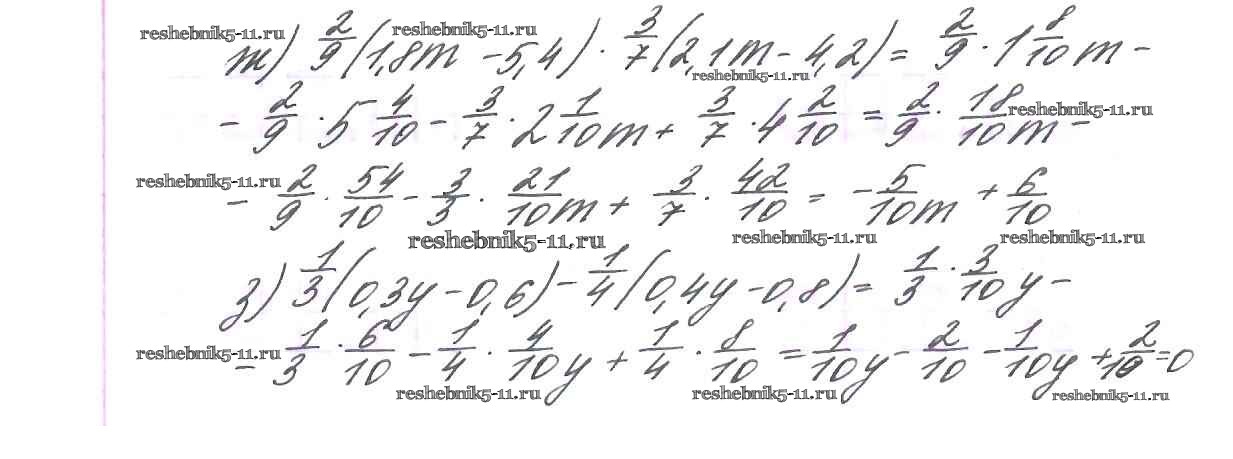 reshebnik5-11.ru reshebnik5-11.ru
ж) 2/9 (1,8m - 5,4) · 3/7 (2,1m - 4,2) = 2/9 · 1 8/10 m -
reshebnik5-11.ru
- 2/9 · 5 4/10 - 3/7 · 2 1/10 m + 3/7 · 4 2/10 = 2/9 · 18/10 m - reshebnik5-11.ru
reshebnik5-11.ru - 2/9 · 54/10 - 3/3 · 21/10 m + 3/7 · 42/10 = - 5/10 m + 6/10
reshebnik5-11.ru reshebnik5-11.ru reshebnik5-11.ru
з) 1/3 (0,3y - 0,6) - 1/4 (0,4y - 0,8) = 1/3 · 3/10 y -
reshebnik5-11.ru - 1/3 · 6/10 - 1/4 · 4/10 y + 1/4 · 8/10 = 1/10 y - 2/10 - 1/10 y + 2/10 = 0
reshebnik5-11.ru reshebnik5-11.ru reshebnik5-11.ru